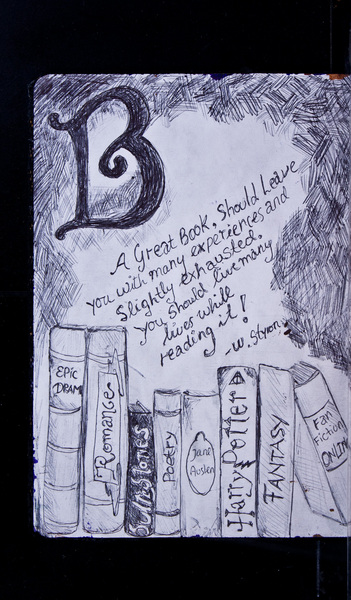 B
A Great Book Should Leave
you with many experiences and
slightly exhausted.
you should live many
lives while
reading it!
-W. Styron
EPIC
DRAMA
Romance
Poetry
Jane
Austen
Harry Potter
FANTASY
Fan
Fiction
ONLINE